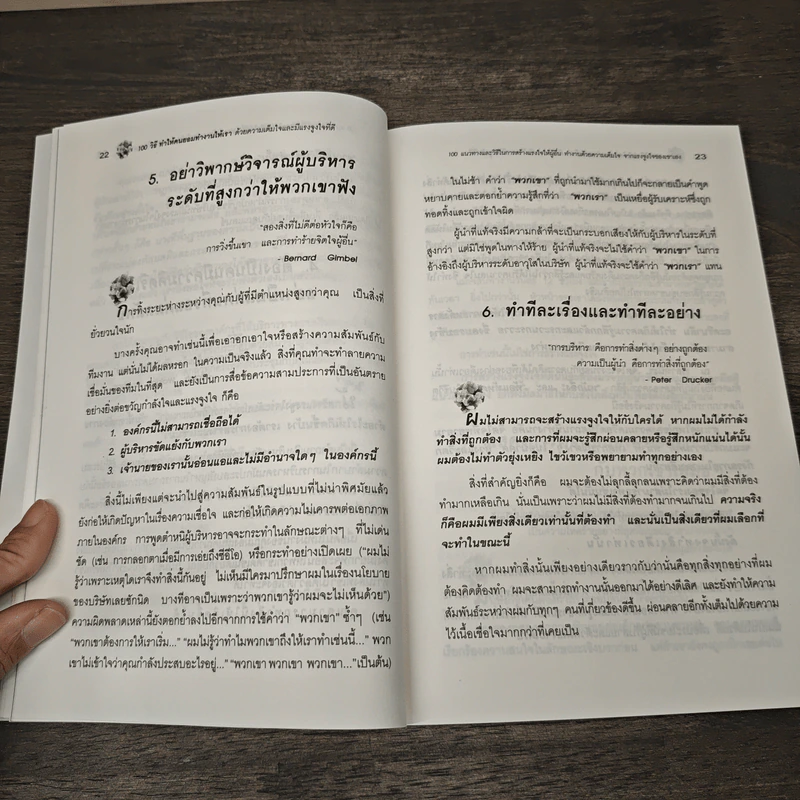 22 100 วิธี ทำให้คนยอมทำงานให้เรา ด้วยความเต็มใจและมีแรงจูงใจที่ดี
5. อย่าวิพากษ์วิจารณ์ผู้บริหาร
ระดับที่สูงกว่าให้พวกเขาฟัง
"สองสิ่งที่ไม่ดีต่อหัวใจก็คือ
การวิ่งขึ้นเขา และการทำร้ายจิตใจผู้อื่น"
- Bernard Gimbel
การทิ้งระยะห่างระหว่างคุณกับผู้ที่มีตำแหน่งสูงกว่าคุณ เป็นสิ่งที่
ยั่วยวนใจนัก
บางครั้งคุณอาจทำเช่นนี้เพื่อเอาอกเอาใจหรือสร้างความสัมพันธ์กับ
ทีมงาน แต่นั่นไม่ได้ผลหรอก ในความเป็นจริงแล้ว สิ่งที่คุณทำจะทำลายความ
เชื่อมั่นของทีมในที่สุด และยังเป็นการสื่อข้อความสามประการที่เป็นอันตราย
อย่างยิ่งต่อขวัญกำลังใจและแรงจูงใจ ก็คือ
1. องค์กรนี้ไม่สามารถเชื่อถือได้
2. ผู้บริหารขัดแย้งกับพวกเรา
3. เจ้านายของเรานั้นอ่อนแอและไม่มีอำนาจใดๆ ในองค์กรนี้
สิ่งนี้ไม่เพียงแต่จะนำไปสู่ความสัมพันธ์ในรูปแบบที่ไม่น่าพิศมัยแล้ว
ยังก่อให้เกิดปัญหาในเรื่องความเชื่อใจ และก่อให้เกิดความไม่เคารพต่อเอกภาพ
ภายในองค์กร การพูดตำหนิผู้บริหารอาจจะกระทำในลักษณะต่างๆ ที่ไม่เด่น
ชัด (เช่น การกลอกตาเมื่อมีการเอ่ยถึงซีอีโอ) หรือกระทำอย่างเปิดเผย ("ผมไม่
รู้ว่าเพราะเหตุใดเราจึงทำสิ่งนี้กันอยู่ ไม่เห็นมีใครมาปรึกษาผมในเรื่องนโยบาย
ของบริษัทเลยซักนิด บางทีอาจเป็นเพราะพวกเขารู้ว่าผมจะไม่เห็นด้วย")
ความผิดพลาดเหล่านี้ยังตอกย้ำลงไปอีกจากการใช้คำว่า "พวกเขา" ซ้ำๆ (เช่น
"พวกเขาต้องการให้เราเริ่ม..." "ผมไม่รู้ว่าทำไมพวกเขาถึงให้เราทำเช่นนี้..." พวก
เขาไม่เข้าใจว่าคุณกำลังประสบอะไรอยู่..." "พวกเขา พวกเขา พวกเขา..." เป็นต้น)
100 แนวทางและวิธีในการสร้างแรงใจให้ผู้อื่น ทำงานด้วยความเต็มใจ จากแรงจูงใจของเขาเอง 23
ในไม่ช้า คำว่า "พวกเขา" ที่ถูกนำมาใช้มากเกินไปก็จะกลายเป็นคำพูด
หยาบคายและตอกย้ำความรู้สึกที่ว่า "พวกเรา" เป็นเหยื่อผู้รับเคราะห์ซึ่งถูก
ทอดทิ้งและถูกเข้าใจผิด
ผู้นำที่แท้จริงมีความกล้าที่จะเป็นกระบอกเสียงให้กับผู้บริหารในระดับที่
สูงกว่า แต่มิใช่พูดในทางให้ร้าย ผู้นำที่แท้จริงจะไม่ใช้คำว่า "พวกเขา" ในการ
อ้างอิงถึงผู้บริหารระดับอาวุโสในบริษัท ผู้นำที่แท้จริงจะใช้คำว่า "พวกเรา" แทน
6. ทำทีละเรื่องและทำทีละอย่าง
"การบริหาร คือการทำสิ่งต่างๆ อย่างถูกต้อง
ความเป็นผู้นำ คือการทำสิ่งที่ถูกต้อง"
- Peter Drucker
ผมไม่สามารถจะสร้างแรงจูงใจให้กับใครได้ หากผมไม่ได้กำลัง
ทำสิ่งที่ถูกต้อง และการที่ผมจะรู้สึกผ่อนคลายหรือรู้สึกหนักแน่นได้นั้น
ผมต้องไม่ทำตัวยุ่งเหยิง ไขว้เขวหรือพยายามทำทุกอย่างเอง
สิ่งที่สำคัญยิ่งก็คือ ผมจะต้องไม่ลุกลี้ลุกลนเพราะคิดว่าผมมีสิ่งที่ต้อง
ทำมากเหลือเกิน นั่นเป็นเพราะว่าผมไม่มีสิ่งที่ต้องทำมากจนเกินไป ความจริง
ก็คือผมมีเพียงสิ่งเดียวเท่านั้นที่ต้องทำ และนั่นเป็นสิ่งเดียวที่ผมเลือกที่
จะทำในขณะนี้
หากผมทำสิ่งนั้นเพียงอย่างเดียวราวกับว่านั่นคือทุกสิ่งทุกอย่างที่ผม
ต้องคิดต้องทำ ผมจะสามารถทำงานนั้นออกมาได้อย่างดีเลิศ และยังทำให้ความ
สัมพันธ์ระหว่างผมกับทุกๆ คนที่เกี่ยวข้องดีขึ้น ผ่อนคลายอีกทั้งเต็มไปด้วยความ
ไว้เนื้อเชื่อใจมากกว่าที่เคยเป็น